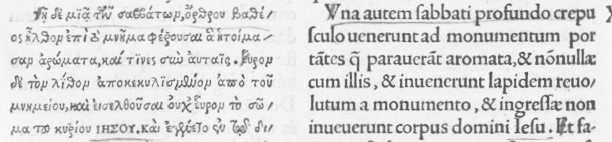 Τῇ δὲ μιᾷ τῶν σαββάτων, ὄρθρου βαθέ-
ος ἦλθον ἐπὶ τὸ μνῆμα φέρουσαι ἃ ἡτοίμα-
σαν ἀρώματα, καί τινες σὺν αὐταῖς. Εὗρον
δὲ τὸν λίθον ἀποκεκυλισμένον ἀπὸ τοῦ
μνημείου, καὶ εἰσελθοῦσαι οὐχ εὗρον τὸ σῶ-
μα τοῦ κυρίου ΙΗΣΟΥ. καὶ ἐγένετο ἐν τῷ δι-
Vna autem sabbati profundo crepu
sculo uenerunt ad monumentum por
tātes q̄ parauerāt aromata, & nōnullæ
cum illis, & inuenerunt lapidem reuo/
lutum a monumento, & ingressæ non
inuenerunt corpus domini Iesu. Et fa-